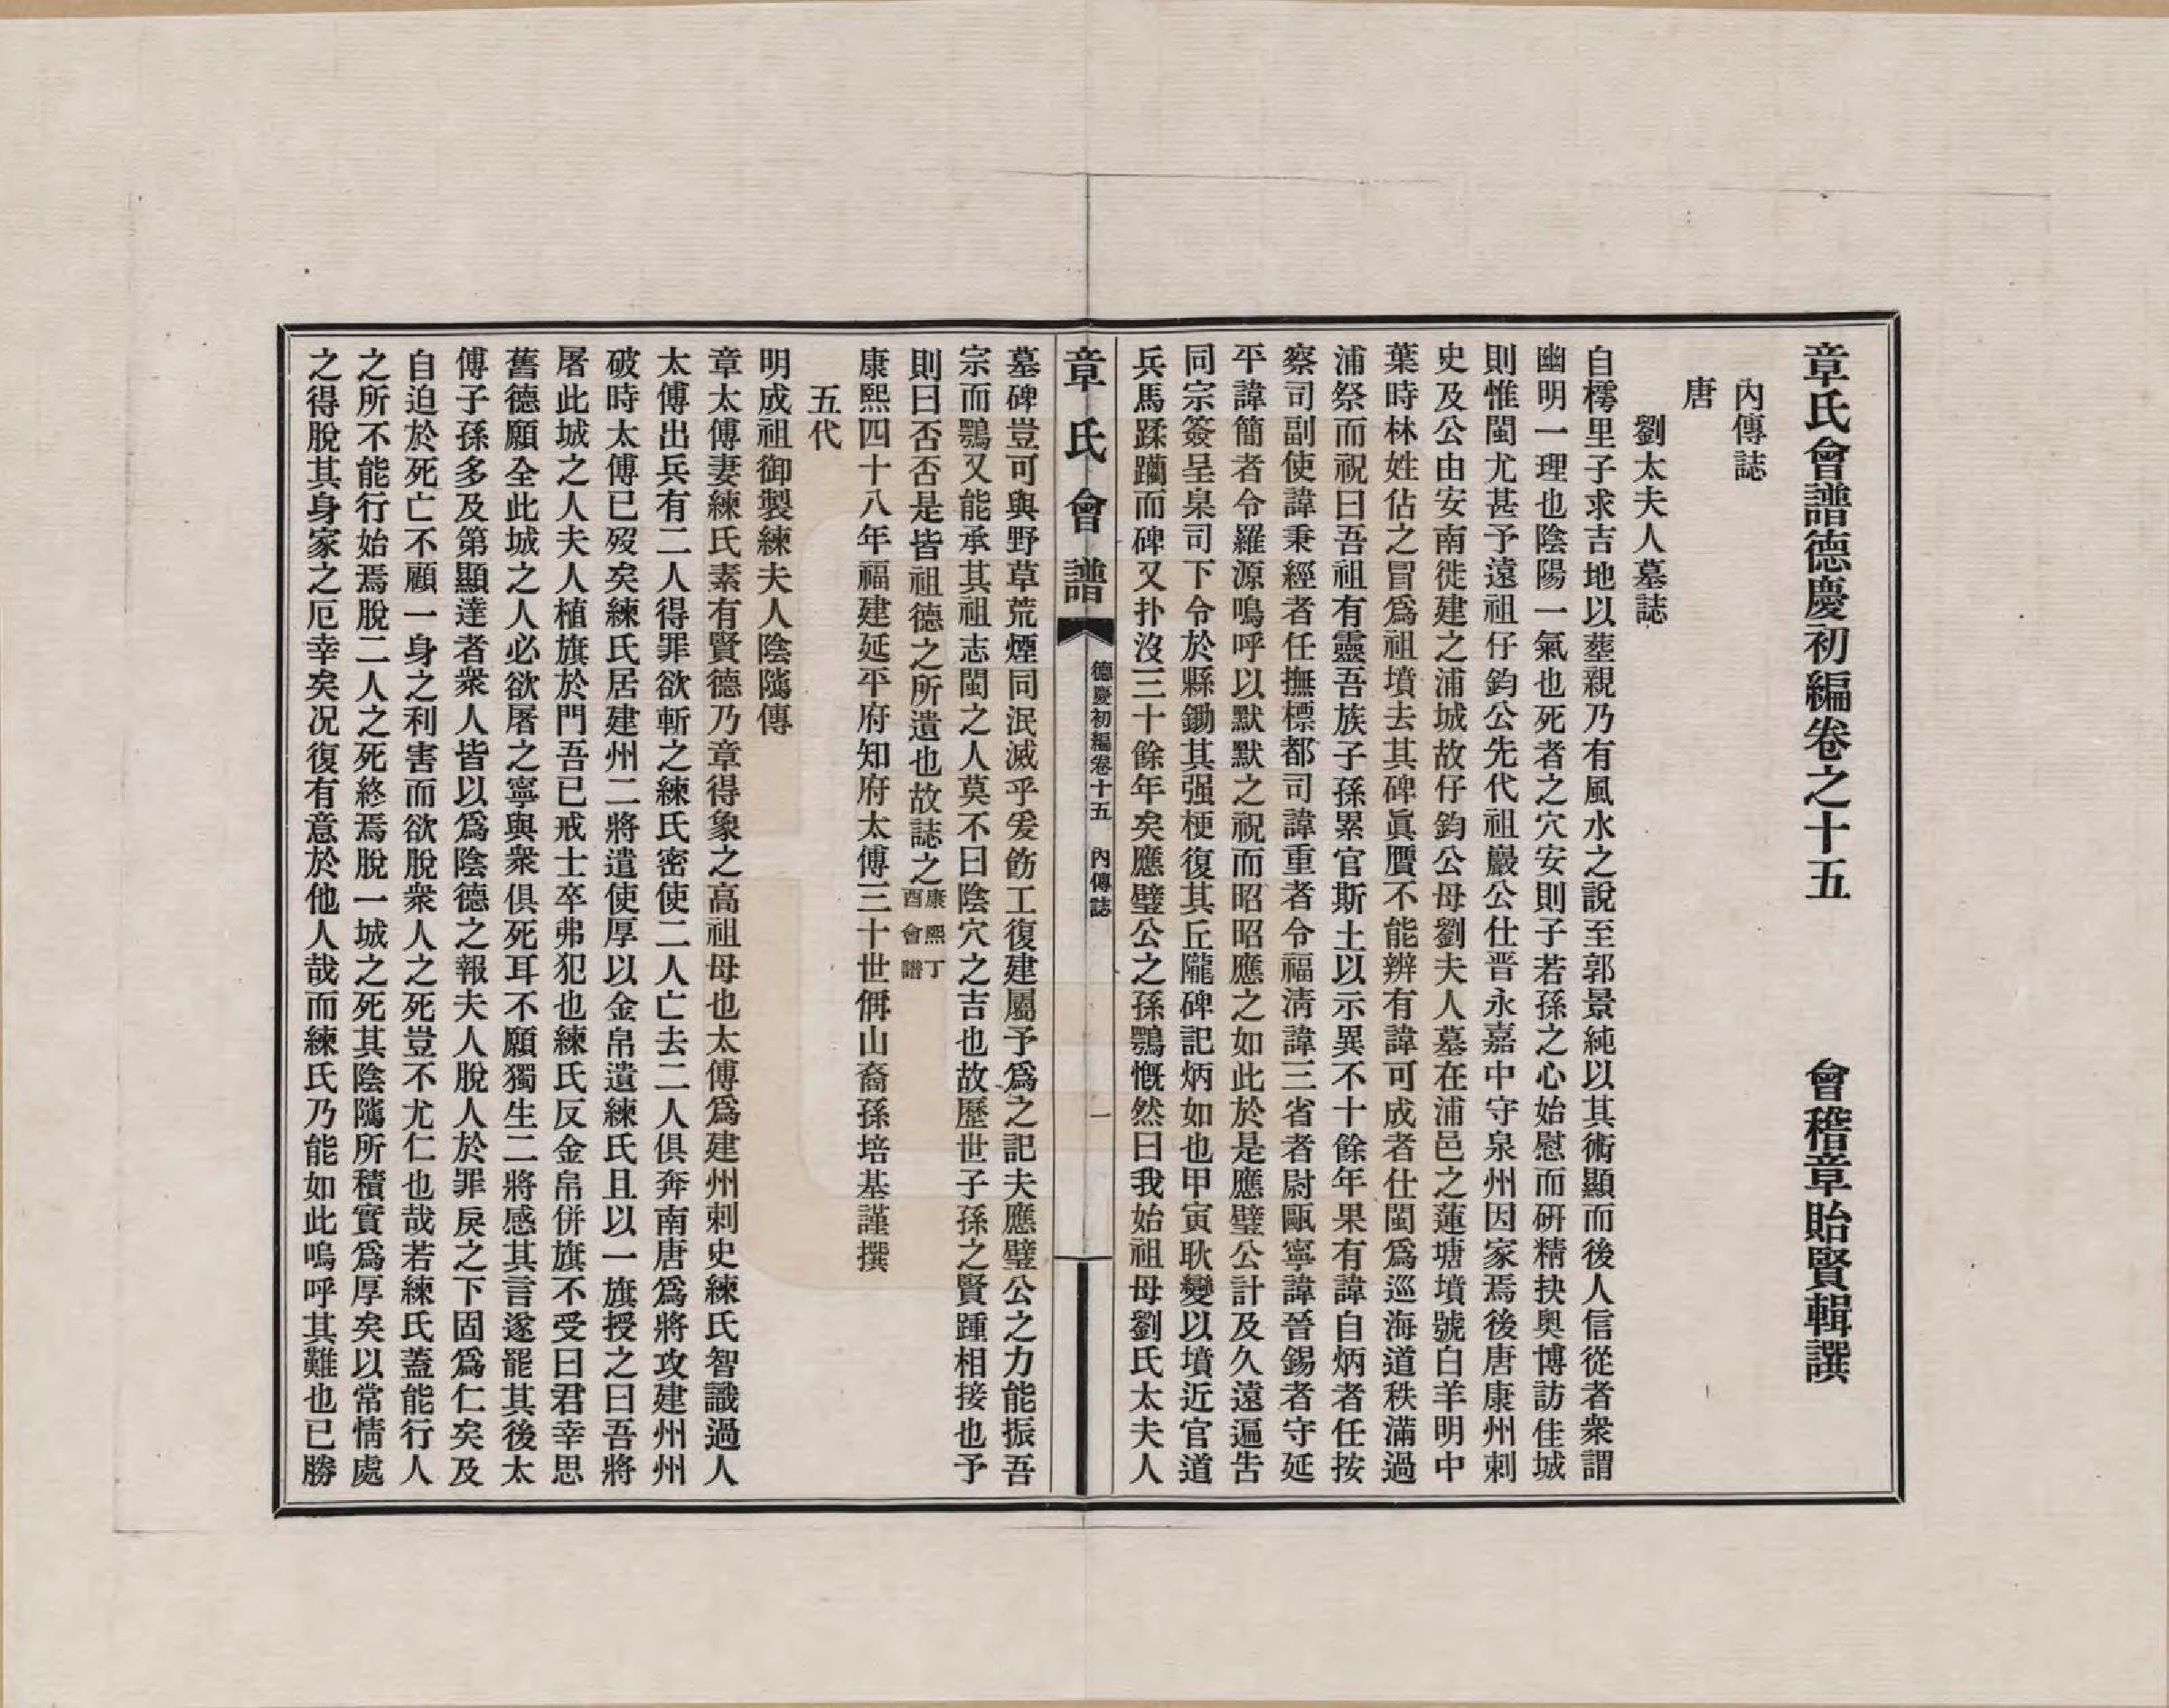 章氏會譜德慶初編卷之十五　　會稽章貽賢輯譔
內傳誌
唐
劉太夫人墓誌
自樗里子求吉地以葬親乃有風水之說至郭景純以其術顯而後人信從者衆謂
幽明一理也陰陽一氣也死者之穴安則子若孫之心始慰而研精抉奧博訪佳城
則惟閩尤甚予遠祖仔鈞公先代祖巖公仕晋永嘉中守泉州因家焉後唐康州刺
史及公由安南徙建之浦城故仔鈞公母劉夫人墓在浦邑之蓮塘墳號白羊明中
葉時林姓佔之冒爲祖墳去其碑眞贋不能辨有諱可成者仕閩爲巡海道秩滿過
浦祭而祝曰吾祖有靈吾族子孫累官斯土以示異不十餘年果有諱自炳者任按
察司副使諱秉經者任撫標都司諱重者令福淸諱三省者尉甌寧諱晉錫者守延
平諱簡者令羅源嗚呼以默默之祝而昭昭應之如此於是應璧公計及久遠遍告
同宗簽呈臬司下令於縣鋤其强梗復其丘隴碑記炳如也甲寅耿變以墳近官道
兵馬蹂躪而碑又扑沒三十餘年矣應璧公之孫鶚慨然曰我始祖母劉氏太夫人
章氏會譜　德慶初編卷十五　內傳誌　一
墓碑豈可與野草荒煙同泯滅乎爰飭工復建屬予爲之記夫應璧公之力能振吾
宗而鶚又能承其祖志閩之人莫不曰陰穴之吉也故歷世子孫之賢踵相接也予
則曰否否是皆祖德之所遺也故誌之康熙丁酉會譜
康熙四十八年福建延平府知府太傅三十世偁山裔孫培基謹撰
五代
明成祖御製練夫人陰隲傳
章太傅妻練氏素有賢德乃章得象之高祖母也太傅爲建州刺史練氏智識過人
太傅出兵有二人得罪欲斬之練氏密使二人亡去二人俱奔南唐爲將攻建州州
破時太傅已歿矣練氏居建州二將遣使厚以金帛遺練氏且以一旗授之曰吾將
屠此城之人夫人植旗於門吾已戒士卒弗犯也練氏反金帛併旗不受曰君幸思
舊德願全此城之人必欲屠之寧與衆俱死耳不願獨生二將感其言遂罷其後太
傅子孫多及第顯達者衆人皆以爲陰德之報夫人脫人於罪戾之下固爲仁矣及
自迫於死亡不顧一身之利害而欲脫衆人之死豈不尤仁也哉若練氏蓋能行人
之所不能行始焉脫二人之死終焉脫一城之死其陰隲所積實爲厚矣以常情處
之得脫其身家之厄幸矣況復有意於他人哉而練氏乃能如此嗚呼其難也已勝